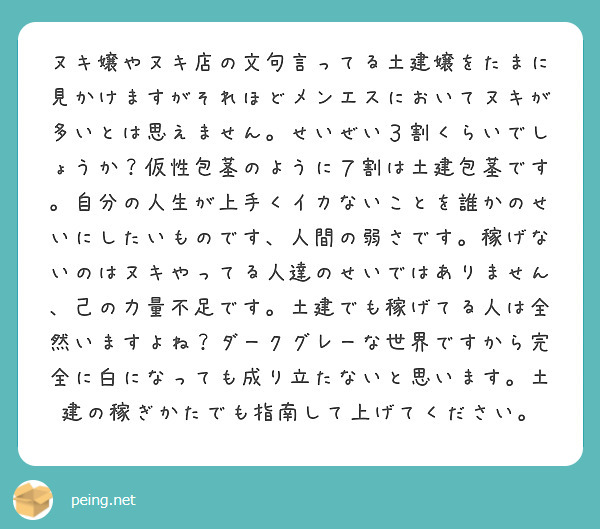 ヌキ嬢やヌキ店の文句言ってる土建嬢をたまに
見かけますがそれほどメンエスにおいてヌキが
多いとは思えません。せいぜい３割くらいでし
ょうか？仮性包茎のように７割は土建包茎です
。自分の人生が上手くイカないことを誰かのせ
いにしたいものです、人間の弱さです。稼げな
いのはヌキやってる人達のせいではありません
、己の力量不足です。土建でも稼げてる人は全
然いますよね？ダークグレーな世界ですから完
全に白になっても成り立たないと思います。土
建の稼ぎかたでも指南して上げてください。
peing.net